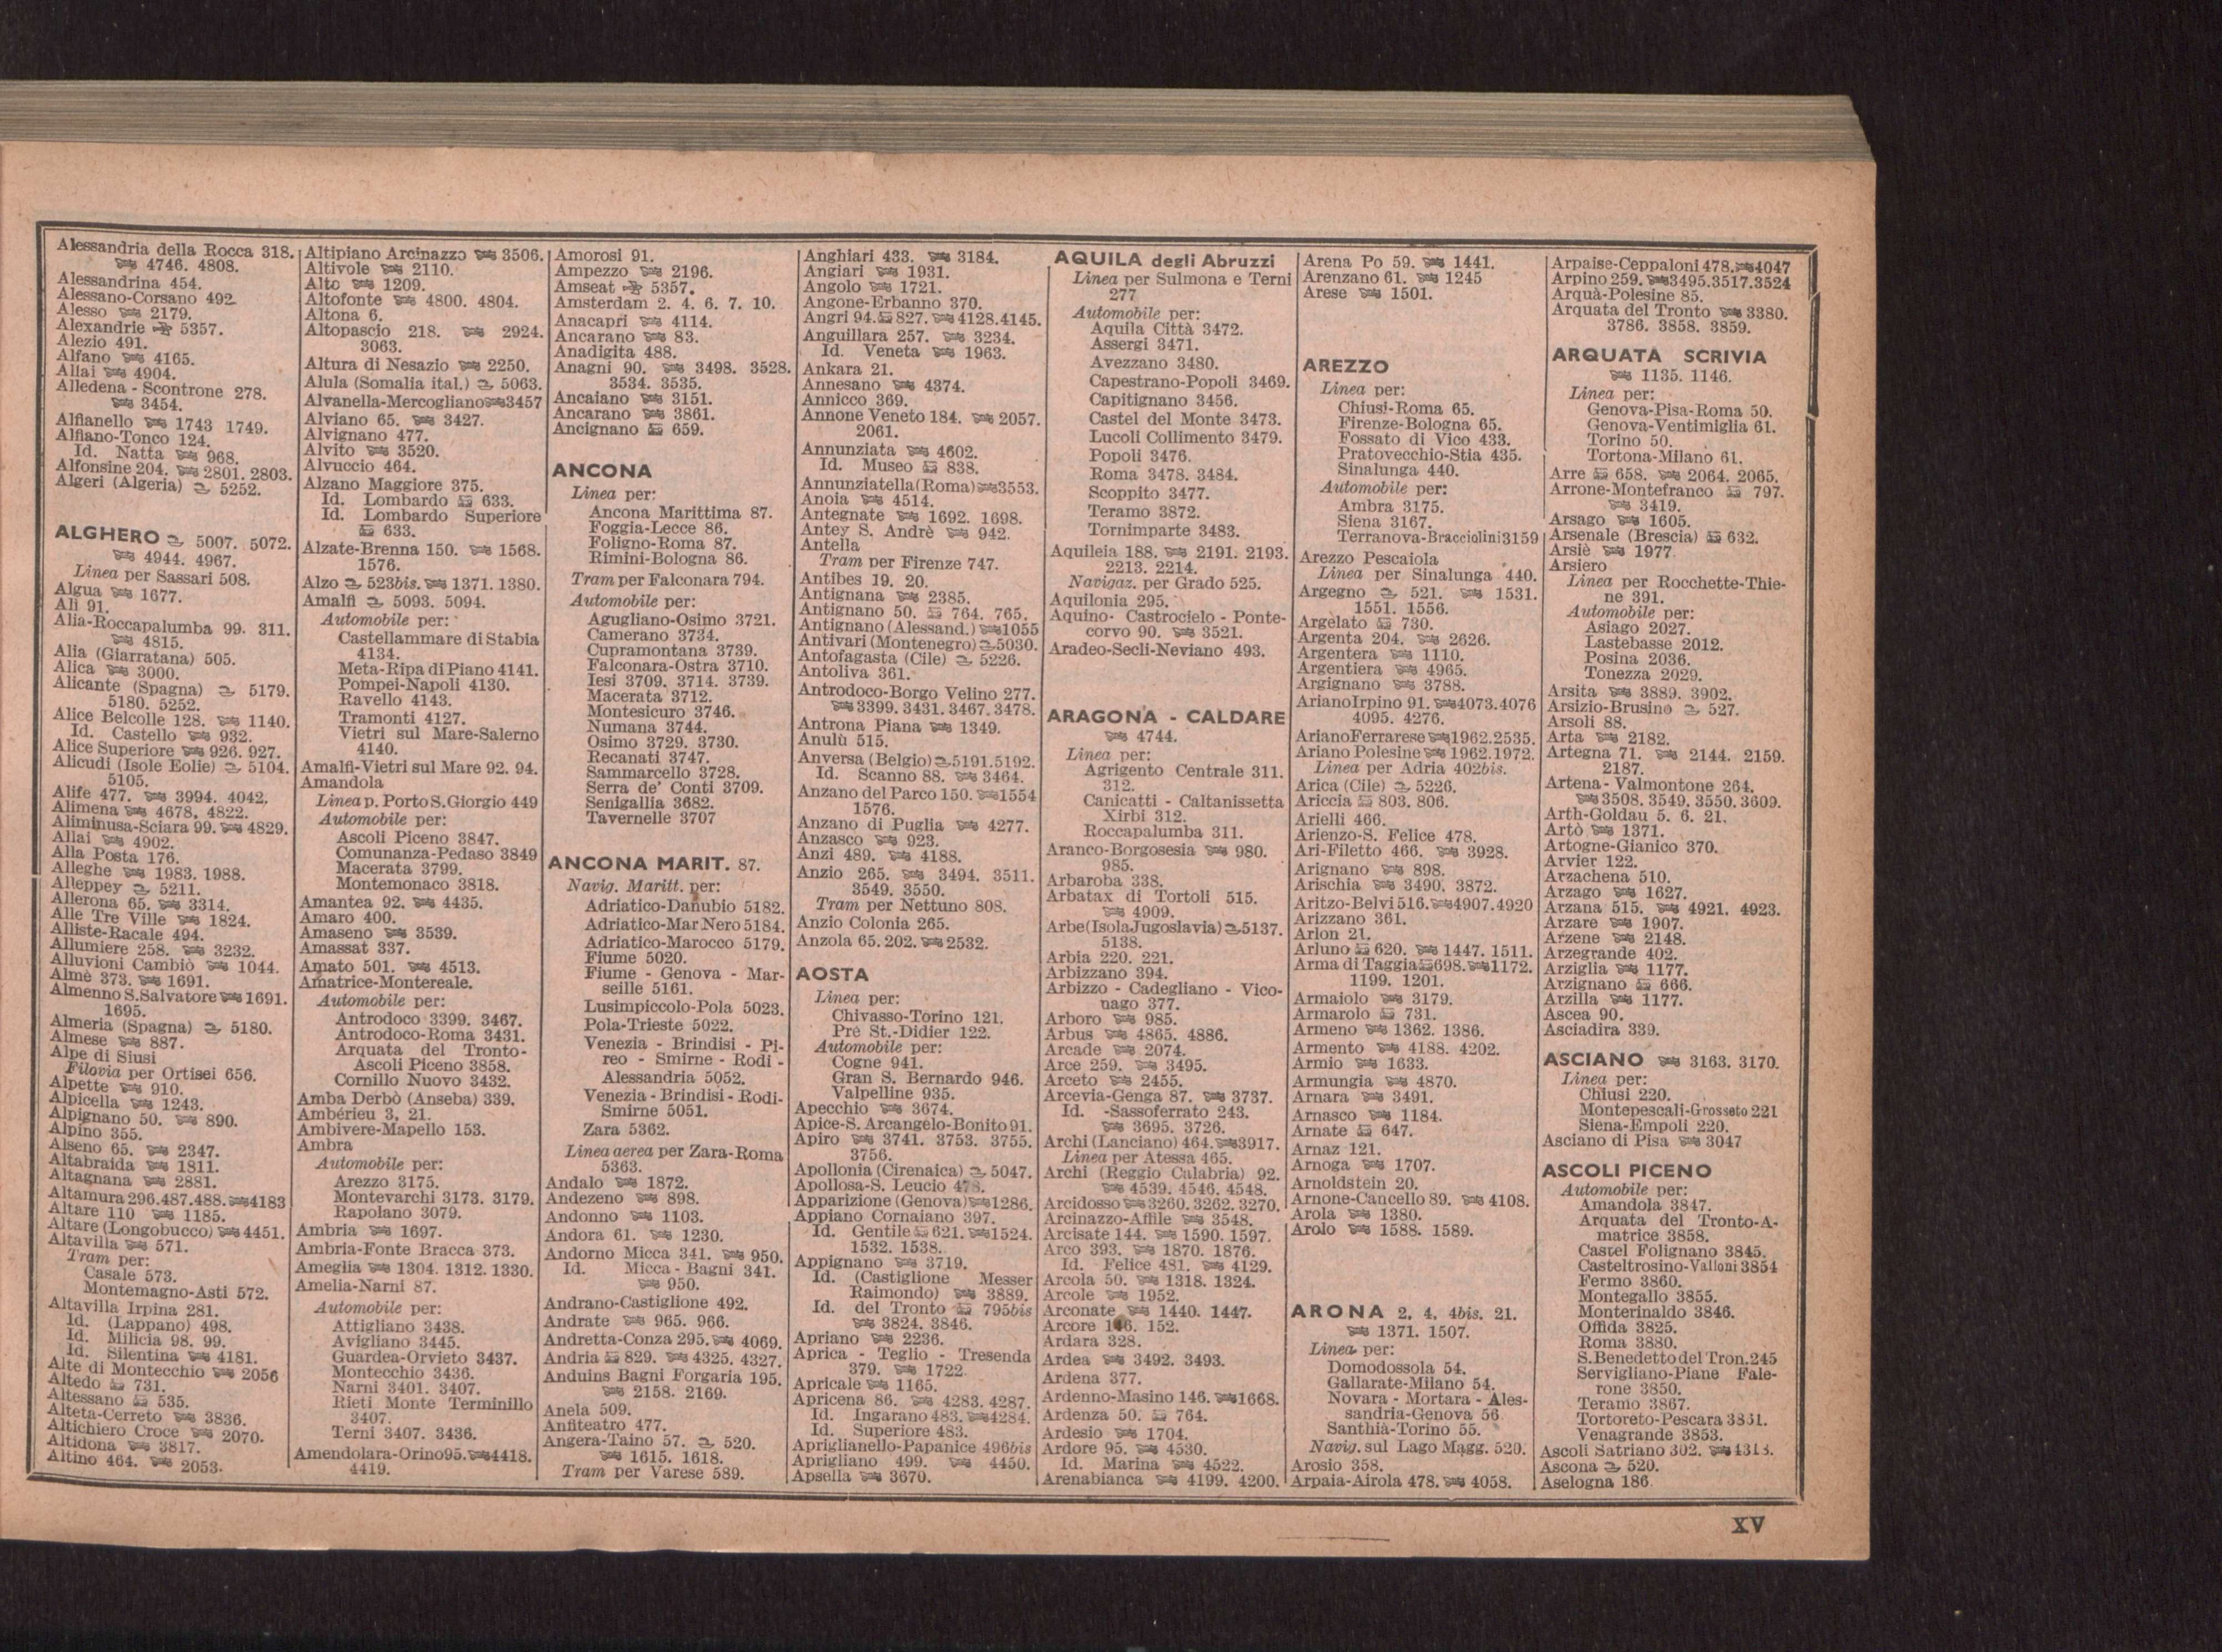 Alessandria della Rocca 318.
4746. 4808.
Alessandrina 454.
Alessano-Corsano 492.
Alesso 2179.
Alexandrie 5357.
Alezio 491.
Alfano 4165.
Allai 4904.
Alledena - Scontrone 278.
3454.
Alfianello 1743 1749.
Alfiano-Tonco 124.
Id. Natta 968.
Alfonsine 204. 2801. 2803.
Algeri (Algeria) 5252.
ALGHERO 5007. 5072.
4944. 4967.
Linea per Sassari 508.
Algua 1677.
Alì 91.
Alia-Roccapalumba 99. 311.
4815.
Alia (Giarratana) 505.
Alica 3000.
Alicante (Spagna) 5179.
5180. 5252.
Alice Belcolle 128. 1140.
Id. Castello 932.
Alice Superiore 926. 927.
Alicudi (Isole Eolie) 5104.
5105.
Alife 477. 3994. 4042.
Alimena 4678. 4822.
Aliminusa-Sciara 99. 4829.
Allai 4902.
Alla Posta 176.
Alleghe 1983. 1988.
Alleppey 5211.
Allerona 65. 3314.
Alle Tre Ville 1824.
Alliste-Racale 494.
Allumiere 258. 3232.
Alluvioni Cambiò 1044.
Almè 373. 1691.
Almenno S.Salvatore 1691.
1695.
Almeria (Spagna) 5180.
Almese 887.
Alpe di Siusi
Filovia per Ortisei 656.
Alpette 910.
Alpicella 1243.
Alpignano 50. 890.
Alpino 355.
Alseno 65. 2347.
Altabraida 1811.
Altagnana 2881.
Altamura 296.487.488. 4183
Altare 110 1185.
Altare (Longobucco) 4451.
Altavilla 571.
Tram per:
Casale 573.
Montemagno-Asti 572.
Altavilla Irpina 281.
Id. (Lappano) 498.
Id. Milicia 98. 99.
Id. Silentina 4181.
Alte di Montecchio 2056
Altedo 731.
Altessano 535.
Alteta-Cerreto 3836.
Altichiero Croce 2070.
Altidona 3817.
Altino 464. 2053.
Altipiano Arcinazzo 3506.
Altivole 2110.
Alto 1209.
Altofonte 4800. 4804.
Altona 6.
Altopascio 218. 2924.
3063.
Altura di Nesazio 2250.
Alula (Somalia ital.) 5063.
Alvanella-Mercogliano 3457
Alviano 65. 3427.
Alvignano 477.
Alvito 3520.
Alvuccio 464.
Alzano Maggiore 375.
Id. Lombardo 633.
Id. Lombardo Superiore
633.
Alzate-Brenna 150. 1568.
1576.
Alzo 523bis. 1371. 1380.
Amalfi 5093. 5094.
Automobile per:
Castellammare di Stabia
4134.
Meta-Ripa di Piano 4141.
Pompei-Napoli 4130.
Ravello 4143.
Tramonti 4127.
Vietri sul Mare-Salerno
4140.
Amalfi-Vietri sul Mare 92. 94.
Amandola
Linea p. Porto S. Giorgio 449
Automobile per:
Ascoli Piceno 3847.
Comunanza-Pedaso 3849
Macerata 3799.
Montemonaco 3818.
Amantea 92. 4435.
Amaro 400.
Amaseno 3539.
Amassat 337.
Amato 501. 4513.
Amatrice-Montereale.
Automobile per:
Antrodoco 3399. 3467.
Antrodoco-Roma 3431.
Arquata del Tronto-
Ascoli Piceno 3858.
Cornillo Nuovo 3432.
Amba Derbò (Anseba) 339.
Ambérieu 3. 21.
Ambivere-Mapello 153.
Ambra
Automobile per:
Arezzo 3175.
Montevarchi 3173. 3179.
Rapolano 3079.
Ambria 1697.
Ambria-Fonte Bracca 373.
Ameglia 1304. 1312. 1330.
Amelia-Narni 87.
Automobile per:
Attigliano 3438.
Avigliano 3445.
Guardea-Orvieto 3437.
Montecchio 3436.
Narni 3401. 3407.
Rieti Monte Terminillo
3407.
Terni 3407. 3436.
Amendolara-Orino95. 4418.
4419.
Amorosi 91.
Ampezzo 2196.
Amseat 5357.
Amsterdam 2. 4. 6. 7. 10.
Anacapri 4114.
Ancarano 83.
Anadigita 488.
Anagni 90. 3498. 3528.
3534. 3535.
Ancaiano 3151.
Ancarano 3861.
Ancignano 659.
ANCONA
Linea per:
Ancona Marittima 87.
Foggia-Lecce 86.
Foligno-Roma 87.
Rimini-Bologna 86.
Tram per Falconara 794.
Automobile per:
Agugliano-Osimo 3721.
Camerano 3734.
Cupramontana 3739.
Falconara-Ostra 3710.
Iesi 3709. 3714. 3739.
Macerata 3712.
Montesicuro 3746.
Numana 3744.
Osimo 3729. 3730.
Recanati 3747.
Sammarcello 3728.
Serra de' Conti 3709.
Senigallia 3682.
Tavernelle 3707
ANCONA MARIT. 87.
Navig. Maritt. per:
Adriatico-Danubio 5182.
Adriatico-Mar Nero 5184.
Adriatico-Marocco 5179.
Fiume 5020.
Fiume - Genova - Mar-
seille 5161.
Lusimpiccolo-Pola 5023.
Pola-Trieste 5022.
Venezia - Brindisi - Pi-
reo - Smirne - Rodi -
Alessandria 5052.
Venezia - Brindisi - Rodi-
Smirne 5051.
Zara 5362.
Linea aerea per Zara-Roma
5363.
Andalo 1872.
Andezeno 898.
Andonno 1103.
Andora 61. 1230.
Andorno Micca 341. 950.
Id. Micca - Bagni 341.
950.
Andrano-Castiglione 492.
Andrate 965. 966.
Andretta-Conza 295. 4069.
Andria 829. 4325. 4327.
Anduins Bagni Forgaria 195.
2158. 2169.
Anela 509.
Anfiteatro 477.
Angera-Taino 57. 520.
1615. 1618.
Tram per Varese 589.
Anghiari 433. 3184.
Angiari 1931.
Angolo 1721.
Angone-Erbanno 370.
Angri 94. 827. 4128.4145.
Anguillara 257. 3234.
Id. Veneta 1963.
Ankara 21.
Annesano 4374.
Annicco 369.
Annone Veneto 184. 2057.
2061.
Annunziata 4602.
Id. Museo 838.
Annunziatella (Roma) 3553.
Anoia 4514.
Antegnate 1692. 1698.
Antey S. Andrè 942.
Antella
Tram per Firenze 747.
Antibes 19. 20.
Antignana 2385.
Antignano 50. 764. 765.
Antignano (Alessand.) 1055
Antivari (Montenegro) 5030.
Antofagasta (Cile) 5226.
Antoliva 361.
Antrodoco-Borgo Velino 277.
3399. 3431. 3467. 3478.
Antrona Piana 1349.
Anulù 515.
Anversa (Belgio) 5191.5192.
Id. Scanno 88. 3464.
Anzano del Parco 150. 1554
1576.
Anzano di Puglia 4277.
Anzasco 923.
Anzi 489. 4188.
Anzio 265. 3494. 3511.
3549. 3550.
Tram per Nettuno 808.
Anzio Colonia 265.
Anzola 65. 202. 2532.
AOSTA
Linea per:
Chivasso-Torino 121.
Prè St.-Didier 122.
Automobile per:
Cogne 941.
Gran S. Bernardo 946.
Valpelline 935.
Apecchio 3674.
Apice-S. Arcangelo-Bonito 91.
Apiro 3741. 3753. 3755.
3756.
Apollonia (Cirenaica) 5047.
Apollosa-S. Leucio 478.
Apparizione (Genova) 1286.
Appiano Cornaiano 397.
Id. Gentile 621. 1524.
1532. 1538.
Appignano 3719.
Id. (Castiglione Messer
Raimondo) 3889.
Id. del Tronto 795bis
3824. 3846.
Apriano 2236.
Aprica - Teglio - Tresenda
379. 1722.
Apricale 1165.
Apricena 86. 4283. 4287.
Id. Ingarano 483. 4284.
Id. Superiore 483.
Apriglianello-Papanice 496bis
Aprigliano 499. 4450.
Apsella 3670.
AQUILA degli Abruzzi
Linea per Sulmona e Terni
277
Automobile per:
Aquila Città 3472.
Assergi 3471.
Avezzano 3480.
Capestrano-Popoli 3469.
Capitignano 3456.
Castel del Monte 3473.
Lucoli Collimento 3479.
Popoli 3476.
Roma 3478. 3484.
Scoppito 3477.
Teramo 3872.
Tornimparte 3483.
Aquileia 188. 2191. 2193.
2213. 2214.
Navigaz. per Grado 525.
Aquilonia 295.
Aquino- Castrocielo - Ponte-
corvo 90. 3521.
Aradeo-Secli-Neviano 493.
ARAGONA - CALDARE
4744.
Linea per:
Agrigento Centrale 311.
312.
Canicatti - Caltanissetta
Xirbi 312.
Roccapalumba 311.
Aranco-Borgosesia 980.
985.
Arbaroba 338.
Arbatax di Tortolì 515.
4909.
Arbe(IsolaJugoslavia) 5137.
5138.
Arbia 220. 221.
Arbizzano 394.
Arbizzo - Cadegliano - Vico-
nago 377.
Arboro 985.
Arbus 4865. 4886.
Arcade 2074.
Arce 259. 3495.
Arceto 2455.
Arcevia-Genga 87. 3737.
Id. -Sassoferrato 243.
3695. 3726.
Archi (Lanciano) 464. 3917.
Linea per Atessa 465.
Archi (Reggio Calabria) 92.
4539. 4546. 4548.
Arcidosso 3260. 3262. 3270.
Arcinazzo-Affile 3548.
Arcisate 144. 1590. 1597.
Arco 393. 1870. 1876.
Id. Felice 481. 4129.
Arcola 50. 1318. 1324.
Arcole 1952.
Arconate 1440. 1447.
Arcore 146. 152.
Ardara 328.
Ardea 3492. 3493.
Ardena 377.
Ardenno-Masino 146. 1668.
Ardenza 50. 764.
Ardesio 1704.
Ardore 95. 4530.
Id. Marina 4522.
Arenabianca 4199. 4200.
Arena Po 59. 1441.
Arenzano 61. 1245
Arese 1501.
AREZZO
Linea per:
Chiusi-Roma 65.
Firenze-Bologna 65.
Fossato di Vico 433.
Pratovecchio-Stia 435.
Sinalunga 440.
Automobile per:
Ambra 3175.
Siena 3167.
Terranova-Bracciolini3159
Arezzo Pescaiola
Linea per Sinalunga 440.
Argegno 521. 1531.
1551. 1556.
Argelato 730.
Argenta 204. 2626.
Argentera 1110.
Argentiera 4965.
Argignano 3788.
ArianoIrpino 91. 4073.4076
4095. 4276.
ArianoFerrarese 1962.2535.
Ariano Polesine 1962.1972.
Linea per Adria 402bis.
Arica (Cile) 5226.
Ariccia 803. 806.
Arielli 466.
Arienzo-S. Felice 478.
Ari-Filetto 466. 3928.
Arignano 898.
Arischia 3490. 3872.
Aritzo-Belvi 516. 4907.4920
Arizzano 361.
Arlon 21.
Arluno 620. 1447. 1511.
Arma di Taggia 698. 1172.
1199. 1201.
Armaiolo 3179.
Armarolo 731.
Armeno 1362. 1386.
Armento 4188. 4202.
Armio 1633.
Armungia 4870.
Arnara 3491.
Arnasco 1184.
Arnate 647.
Arnaz 121.
Arnoga 1707.
Arnoldstein 20.
Arnone-Cancello 89. 4108.
Arola 1380.
Arolo 1588. 1589.
ARONA 2. 4. 4bis. 21.
1371. 1507.
Linea per:
Domodossola 54.
Gallarate-Milano 54.
Novara - Mortara - Ales-
sandria-Genova 56
Santhià-Torino 55.
Navig. sul Lago Magg. 520.
Arosio 358.
Arpaia-Airola 478. 4058.
Arpaise-Ceppaloni 478. 4047
Arpino 259. 3495.3517.3524
Arquà-Polesine 85.
Arquata del Tronto 3380.
3786. 3858. 3859.
ARQUATA SCRIVIA
1135. 1146.
Linea per:
Genova-Pisa-Roma 50.
Genova-Ventimiglia 61.
Torino 50.
Tortona-Milano 61.
Arre 658. 2064. 2065.
Arrone-Montefranco 797.
3419.
Arsago 1605.
Arsenale (Brescia) 632.
Arsiè 1977
Arsiero
Linea per Rocchette-Thie-
ne 391.
Automobile per:
Asiago 2027.
Lastebasse 2012.
Posina 2036.
Tonezza 2029.
Arsita 3889. 3902.
Arsizio-Brusino 527.
Arsoli 88.
Arta 2182.
Artegna 71. 2144. 2159.
2187.
Artena - Valmontone 264.
3508. 3549. 3550. 3609.
Arth-Goldau 5. 6. 21.
Artò 1371.
Artogne-Gianico 370.
Arvier 122.
Arzachena 510.
Arzago 1627.
Arzana 515. 4921. 4923.
Arzare 1907.
Arzene 2148.
Arzegrande 402.
Arziglia 1177.
Arzignano 666.
Arzilla 1177.
Ascea 90.
Asciadira 339.
ASCIANO 3163. 3170.
Linea per:
Chiusi 220.
Montepescali-Grosseto 221
Siena-Empoli 220.
Asciano di Pisa 3047
ASCOLI PICENO
Automobile per:
Amandola 3847.
Arquata del Tronto-A-
matrice 3858.
Castel Folignano 3845.
Casteltrosino-Valloni 3854
Fermo 3860.
Montegallo 3855.
Monterinaldo 3846.
Offida 3825.
Roma 3880.
S.Benedetto del Tron.245
Servigliano-Piane Fale-
rone 3850.
Teramo 3867.
Tortoreto-Pescara
Venagrande 3853.
Ascoli Satriano 302.
Ascona 520.
Aselogna 186
XV